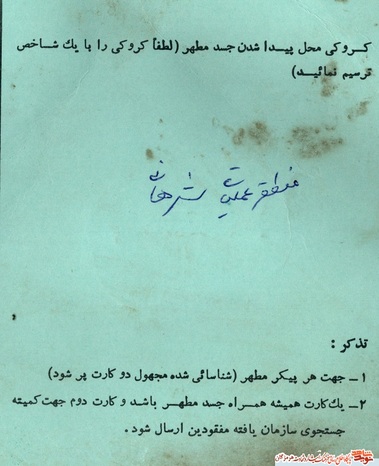 کروکی محل پیدا شدن جسد مطهر (لطفاً کروکی را با یك شاخص
ترسیم نمائید)
منطقه عملیاتی شرهانی
تذکر :
۱ـ جهت هر پیکر مطهر (شناسائی شده مجهول دو کارت پر شود)
۲ـ یك کارت همیشه همراه جسد مطهر باشد و کارت دوم جهت کمیته
جستجوی سازمان یافته مفقودین ارسال شود .